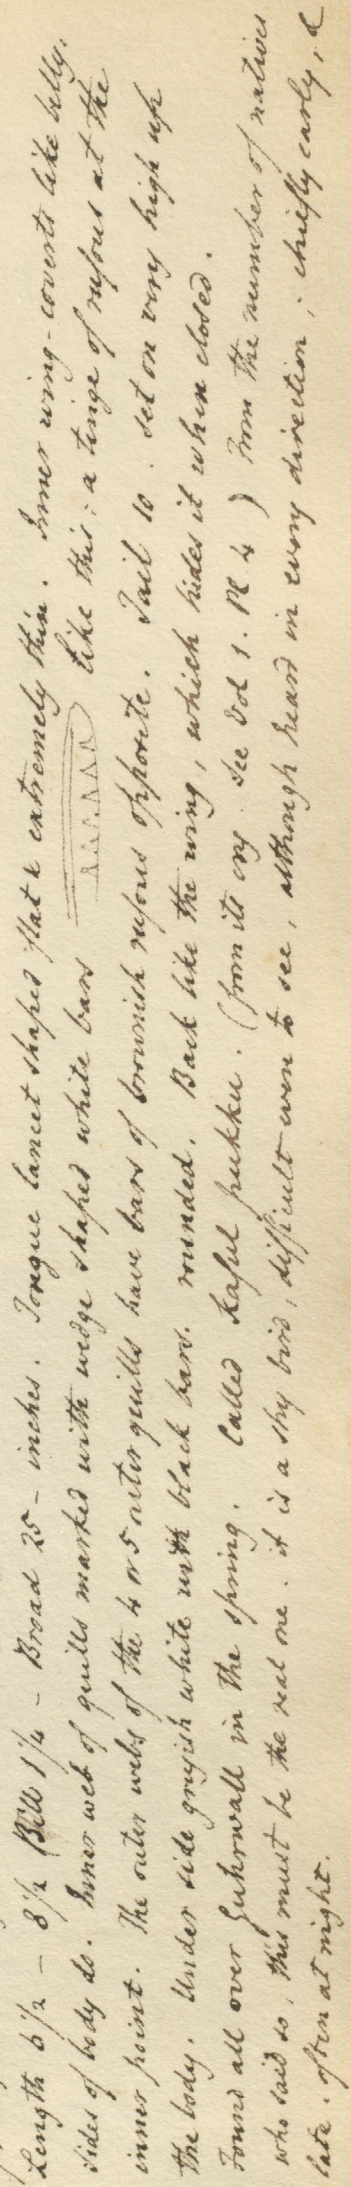 Length 6 1/2 – 8 1/2 Bill 1 1/4 – Broad 25 – inches. Tongue lancet shaped flat & extremely thin. Inner wing-coverts like belly.
sides of body do. Inner web of quills marked with wedge shaped white bars like this: a tinge of rufous at the
inner point. The outer webs of the 4 or 5 outer quills have bars of brownish rufous opposite. Tail 10. set on very high up
the body. Under side greyish white with black bars. rounded. Back like the wing, which hides it when closed.
Found all over Guhrwall in the spring. Called Kaful pukku. (from its cry. See Vol 1. Pl 4) From the number of natives
who said so, this must be the real one. it is a shy bird, difficult even to see, although heard in every direction; chiefly early, &
late. often at night.